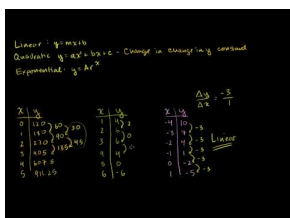 Linear : y=mx+b
Quadratic y=ax²+bx+c - Change in change in y constant
Exponential: y=Ar^x
Δy/Δx = -3/1
x | y
0 120
1 180
2 270
3 405
4 607.5
5 911.25
60
90
135
30
45
x | y
1
2 4
3 6
4 4
5 0
6 -6
2
0
x | y
-4 10
-3 7
-2 4
-1 1
0 -2
1 -5
-3
-3
-3
-3
-3
Linear